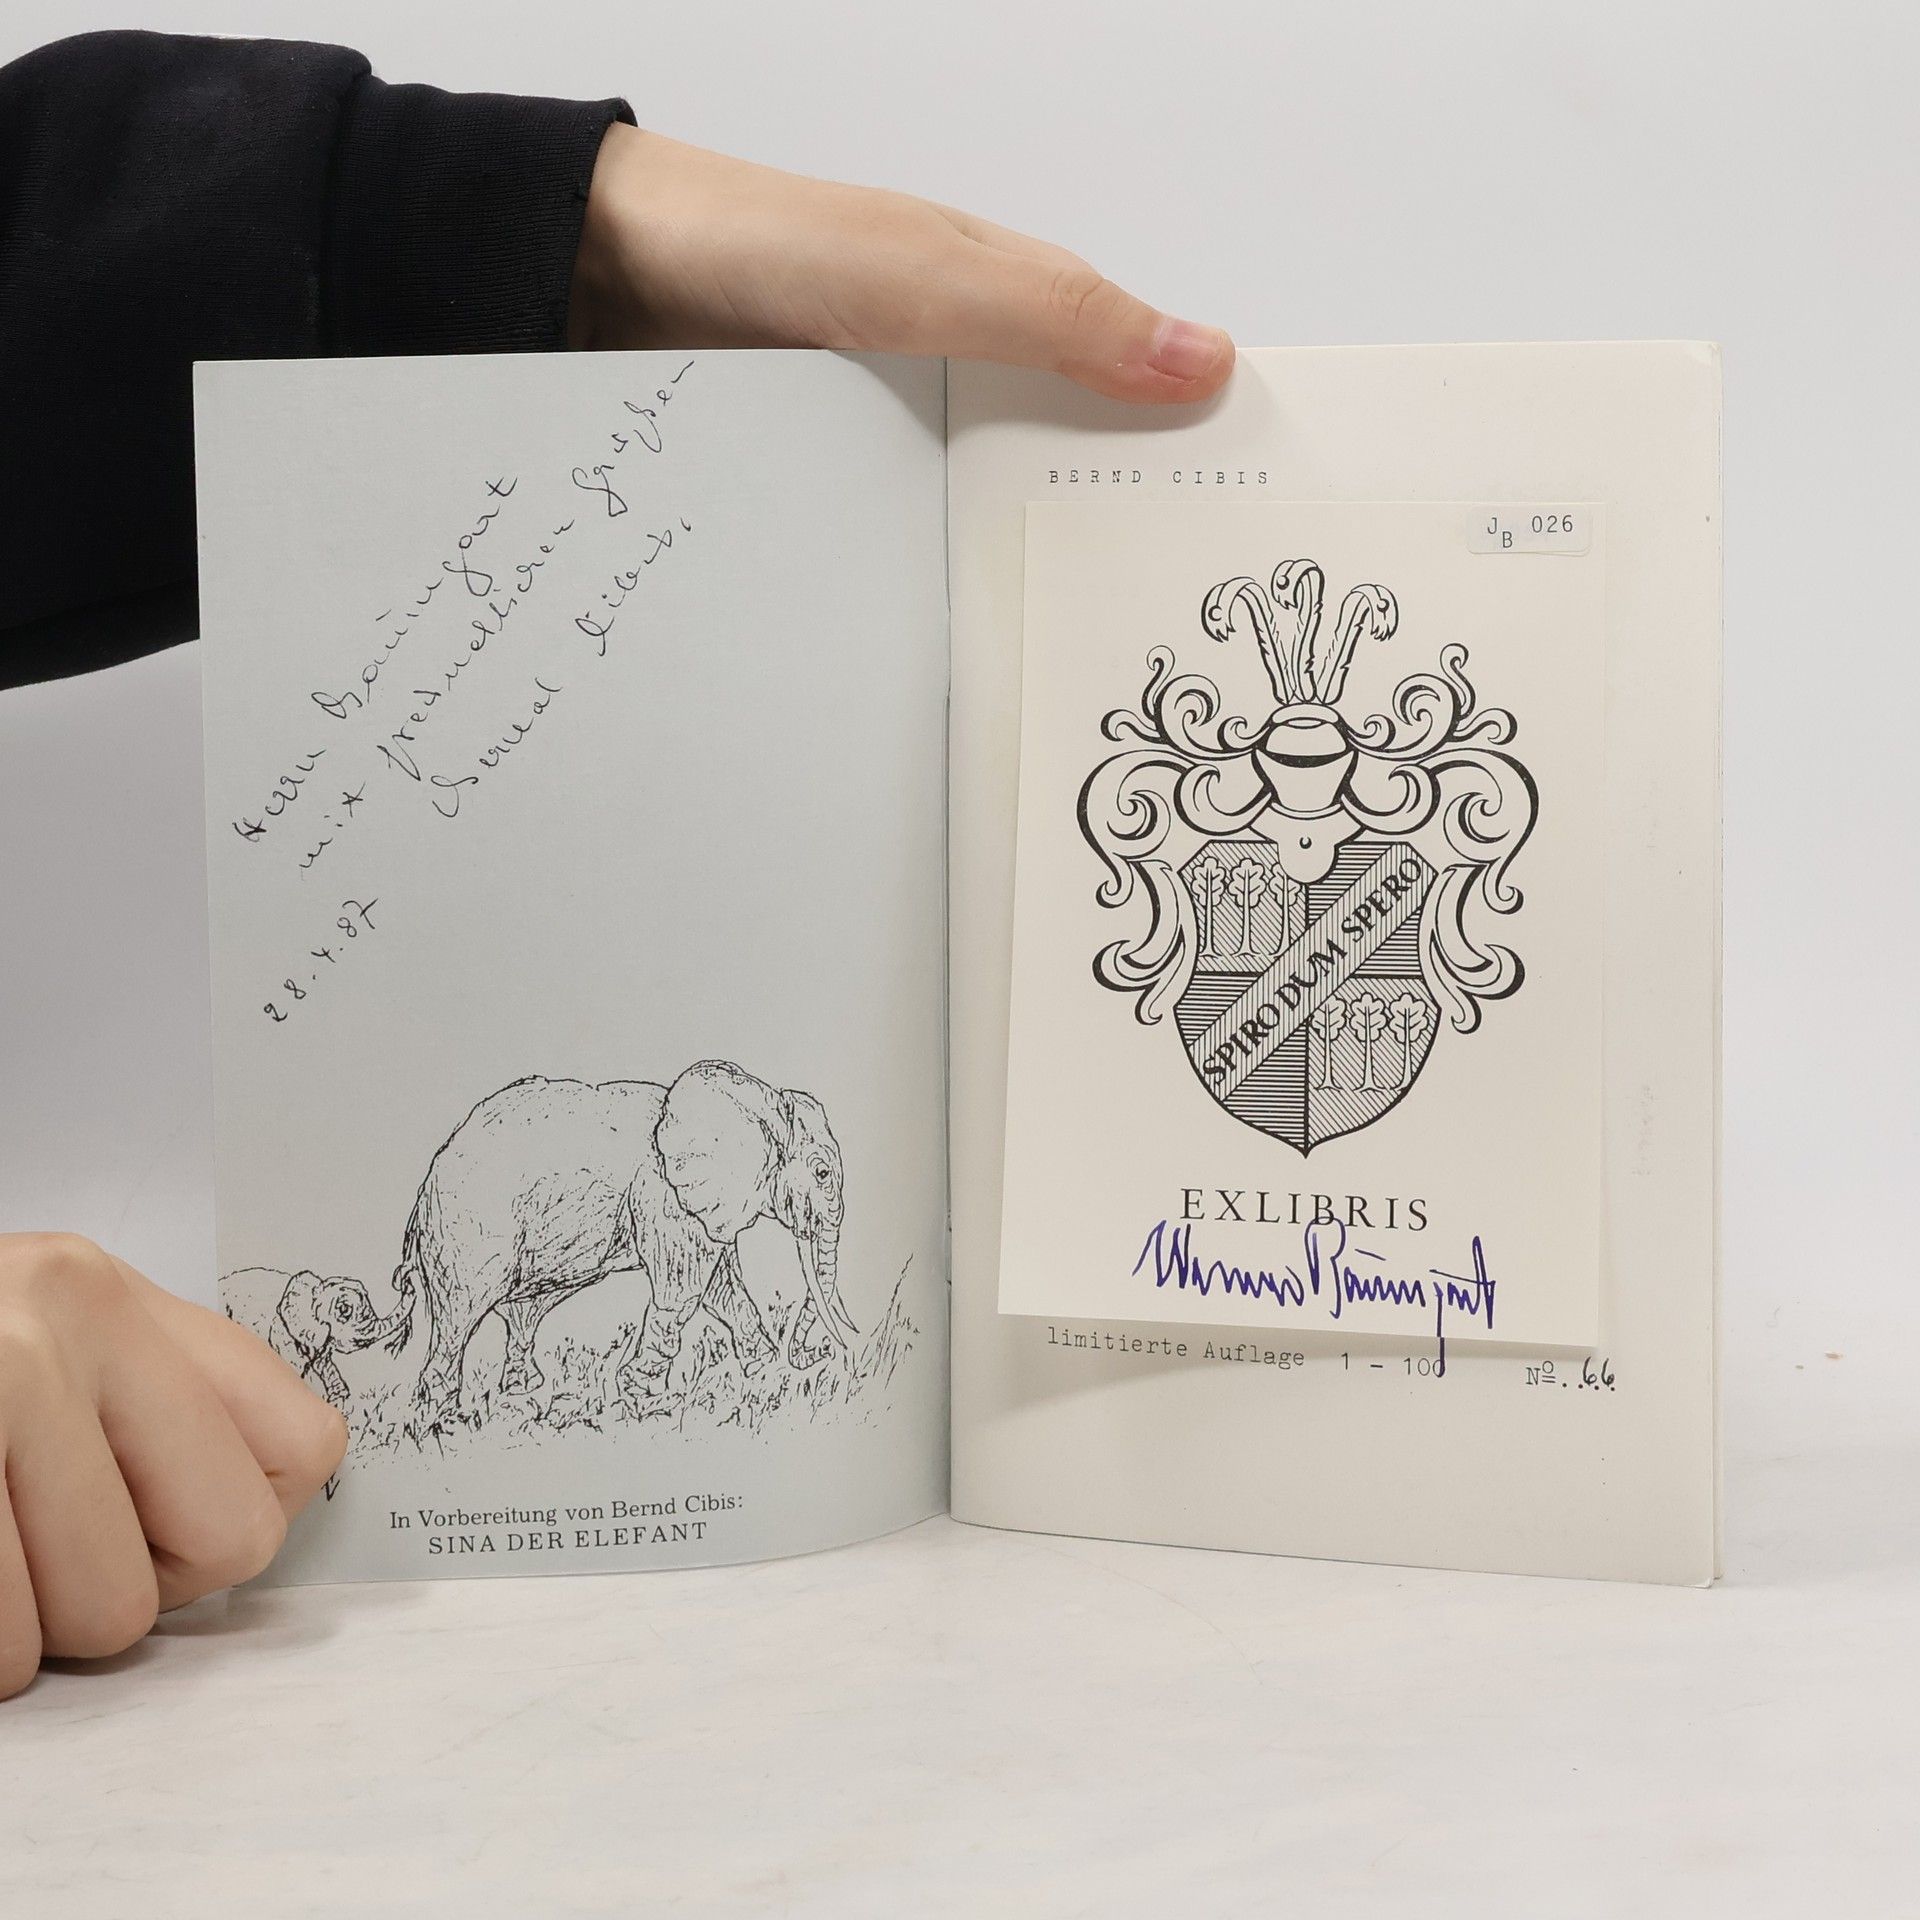 Herrn Baumgart
mit freundlichen Grüßen
Bernd Cibis.
28.4.87
In Vorbereitung von Bernd Cibis:
SINA DER ELEFANT
BERND CIBIS
JB 026
SPIRO DUM SPERO
EXLIBRIS
Werner Baumgart
limitierte Auflage 1 - 100 Nº..66.